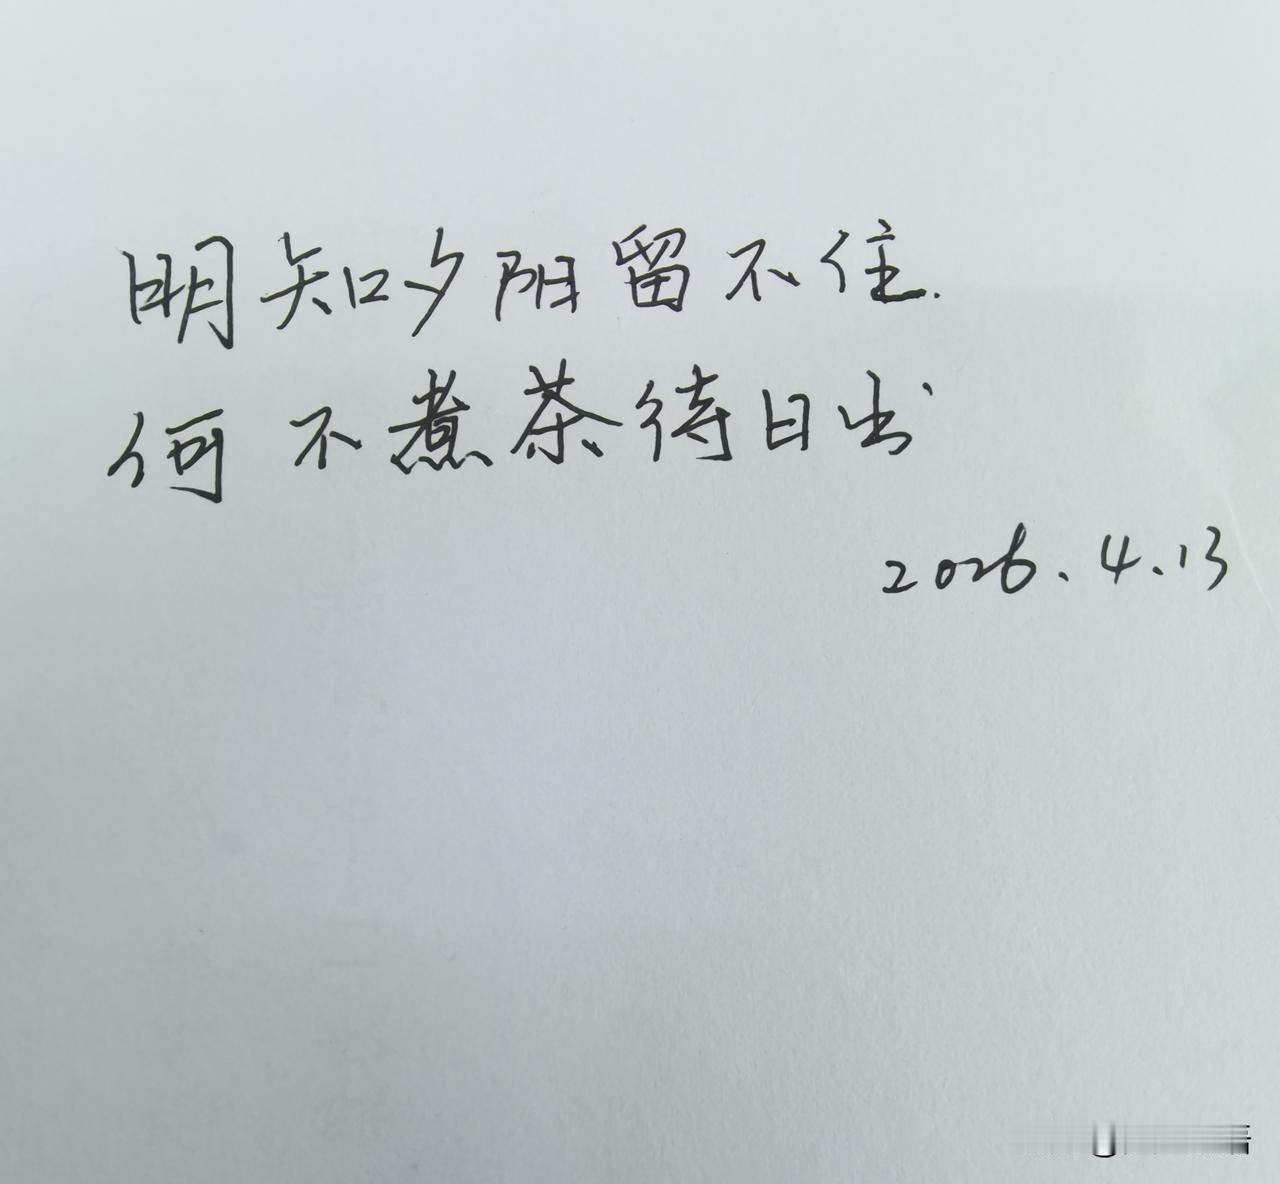 明知夕阳留不住.
何不煮茶待日出
2026.4.13